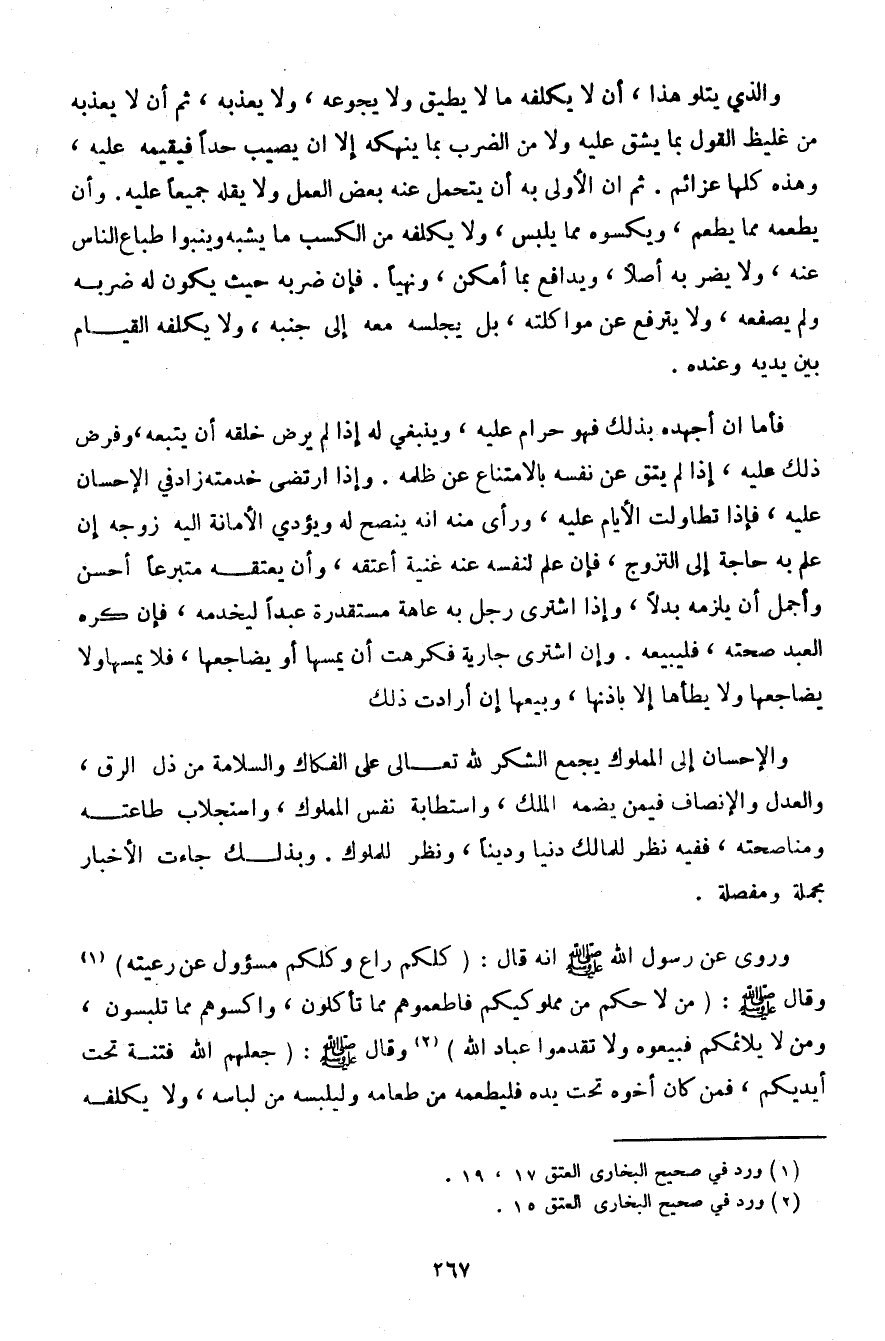 والذي يتلو هذا ، أن لا يكلفه ما لا يطيق ولا يجوعه ، ولا يعذبه ، ثم أن لا يعذبه
من غليظ القول بما يشق عليه ولا من الضرب بما ينهكه إلا ان يصيب حداً فيقيمه عليه ،
وهذه كلها عزائم . ثم ان الأولى به أن يتحمل عنه بعض العمل ولا يقله جميعاً عليه . وأن
يطعمه مما يطعم ، ويكسوه مما يلبس ، ولا يكلفه من الكسب ما يشبه وينبوا طباع الناس
عنه ، ولا يضر به أصلاً ، ويدافع بما أمكن ، ونهياً . فإن ضربه حيث يكون له ضربـــه
ولم يصفعه ، ولا يترفع عن مواكلته ، بل يجلسه معه إلى جنبه ، ولا يكلفه القيـــام
بين يديه وعنده .
فأما ان أجهده بذلك فهو حرام عليه ، وينبغي له إذا لم يرض خلقه أن يتبعه ، وفرض
ذلك عليه ، إذا لم يتق عن نفسه بالامتناع عن ظلمه . وإذا ارتضى خدمته زاد في الإحسان
عليه ، فإذا تطاولت الأيام عليه ، ورأى منه انه ينصح له ويؤدي الأمانة اليه زوجه إن
علم به حاجة إلى التزوج ، فإن علم لنفسه عنه غنية أعتقه ، وأن يعتقـــه متبرعاً أحسن
وأجمل أن يلزمه بدلاً ، وإذا اشترى رجل به عاهة مستقدرة عبداً ليخدمه ، فإن كره
العبد صحته ، فليبيعه . وإن اشترى جارية فكرهت أن يمسها أو يضاجعها ، فلا يمسها ولا
يضاجعها ولا يطأها إلا بإذنها ، وبيعها إن أرادت ذلك
والإحسان إلى المملوك يجمع الشكر لله تعـــالى على الفكاك والسلامة من ذل الرق ،
والعدل والإنصاف فيمن يضمه الملك ، واستطابة نفس المملوك ، واستجلاب طاعتـــه
ومناصحته ، ففيه نظر للمالك دنيا وديناً ، ونظر للملوك . وبذلـــك جاءت الأخبار
مجملة ومفصلة .
وروى عن رسول الله ﷺ انه قال : ( كلكم راع وكلكم مسؤول عن رعيته ) (١)
وقال ﷺ : ( من لا حكم من مملوكيكم فاطعموهم مما تأكلون ، واكسوهم مما تلبسون ،
ومن لا يلائمكم فبيعوه ولا تقدموا عباد الله ) (٢) وقال ﷺ : ( جعلهم الله فتنـــة تحت
أيديكم ، فمن كان أخوه تحت يده فليطعمه من طعامه وليلبسه من لباسه ، ولا يكلفـــه
(١) ورد في صحيح البخارى العتق ١٧ ، ١٩ .
(٢) ورد في صحيح البخارى العتق ١٥ .
٢٦٧